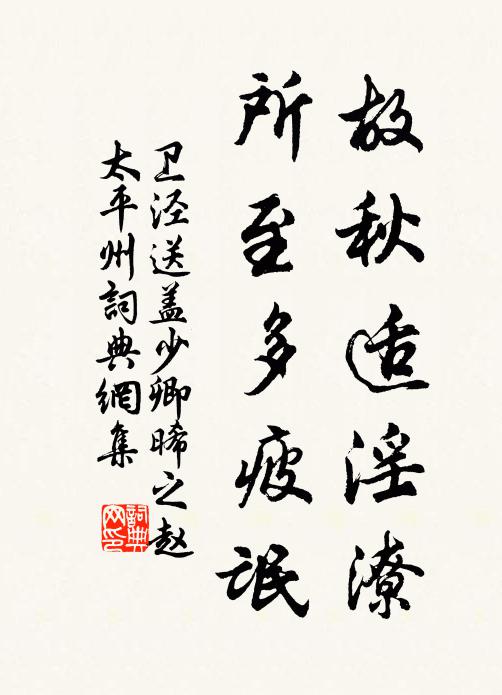 故秋适淫潦
所至多疲氓
卫泾送盖少卿晞之赵
太平州詞典網集
詞典
网印